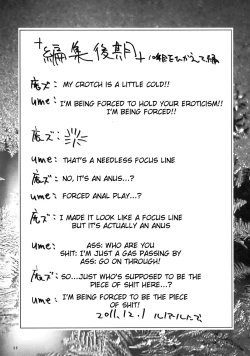 編集後期
鹿ズ: MY CROTCH IS A LITTLE COLD!!
ume: I'M BEING FORCED TO HOLD YOUR EROTICISM!!
I'M BEING FORCED!!
鹿ズ:
ume: THAT'S A NEEDLESS FOCUS LINE
鹿ズ: NO, IT'S AN ANUS...?
ume: FORCED ANAL PLAY...?
鹿ズ: I MADE IT LOOK LIKE A FOCUS LINE
BUT IT'S ACTUALLY AN ANUS
ume: ASS: WHO ARE YOU
SHIT: I'M JUST A GAS PASSING BY
ASS: GO ON THROUGH!
鹿ズ: SO...JUST WHO'S SUPPOSED TO BE THE
PIECE OF SHIT HERE...?
ume: I'M BEING FORCED TO BE THE PIECE
OF SHIT!
2011.12.1